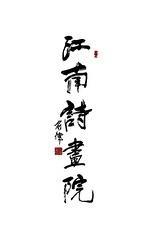 江南詩畫院